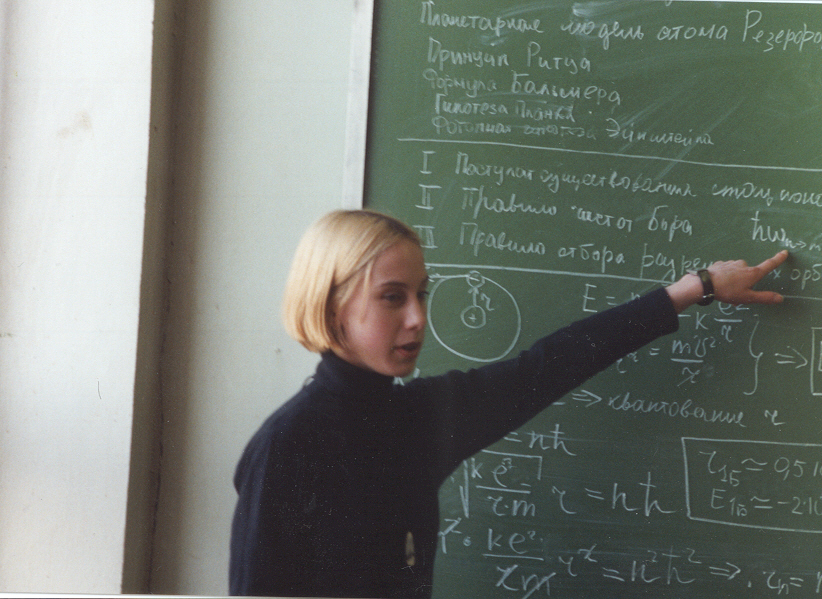 Планетарная модель атома Резерфо
Принцип Ритца
Формула Бальмера
Гипотеза Планка
Фотонная Эйнштейна
I Постулат существования стац
II Правило частот Бора ħω
III Правило отбора разреш орб
E =
k e²/r
= mv²/r } ⇒
⇒ квантование r
= nħ
r₁Б ≃ 0,5
E₁Б ≃ -2·10
√(k e²/r·m) r = nħ
ke²/rm r² = n²ħ² ⇒ rₙ =